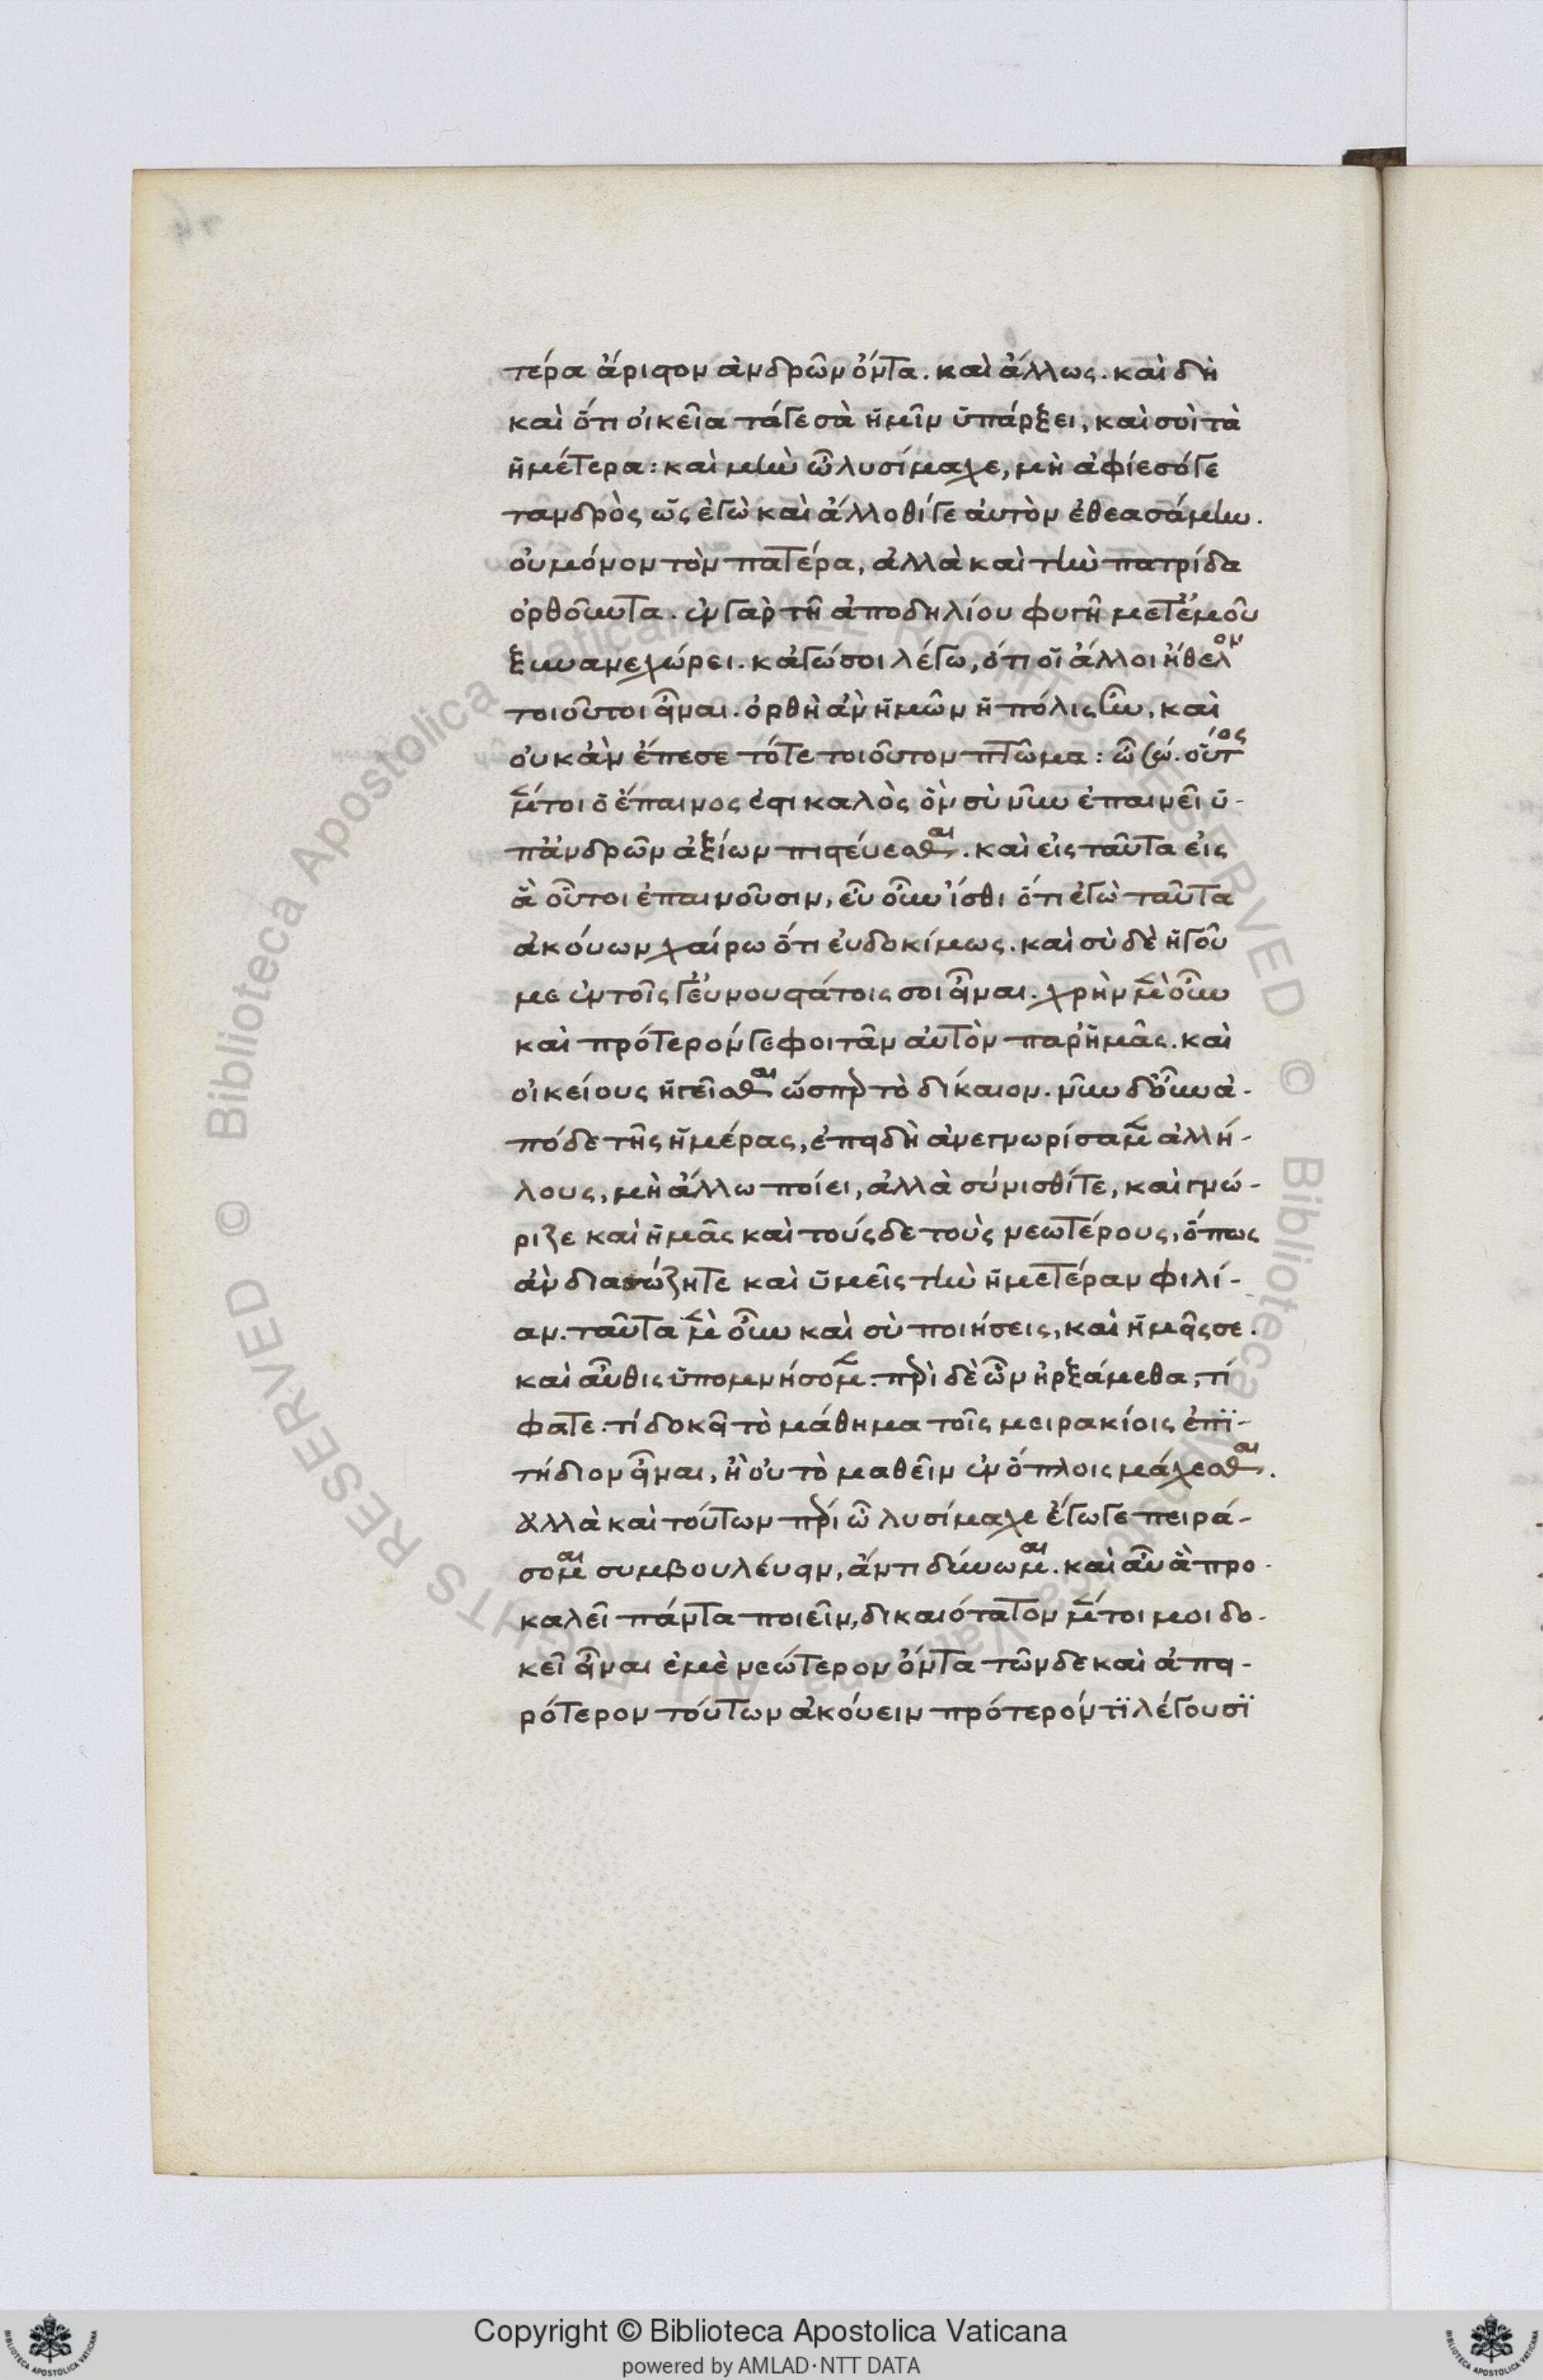 τέρα ἄριστον ἀνδρῶν ὄντα. καὶ ἄλλως. καὶ δὴ
καὶ ὅτι οἰκεῖα τά γε σὰ ἡμῖν ὑπάρξει, καὶ σοὶ τὰ
ἡμέτερα: καὶ μὴν ὦ λυσίμαχε, μὴ ἀφίεσό γε
τανδρὸς ὡς ἐγὼ καὶ ἄλλοθί γε αὐτὸν ἐθεασάμην.
οὐ μόνον τὸν πατέρα, ἀλλὰ καὶ τὴν πατρίδα
ὀρθοῦντα. ἐν γὰρ τῇ ἀπο δηλίου φυγῆ μετ' ἐμοῦ
ξυνανεχώρει. κἀγώ σοι λέγω, ὅτι οἱ ἄλλοι ἤθελον
τοιοῦτοι εἶναι. ὀρθὴ ἂν ἡμῶν ἡ πόλις ἦν, καὶ
οὐκ ἂν ἔπεσε τότε τοιοῦτον πτῶμα: ὦ σώ. οὗτος
μέντοι ὁ ἔπαινος ἐστι καλὸς ὃν σὺ νῦν ἐπαινεῖ ὑ-
π' ἀνδρῶν ἀξίων πιστεύεσθαι. καὶ εἰς ταῦτα εἰς
ἃ οὗτοι ἐπαινοῦσιν, εὖ οὖν ἴσθι ὅτι ἐγὼ ταῦτα
ἀκούων χαίρω ὅτι εὐδοκίμως. καὶ σὺ δὲ ἡγοῦ
με ἐν τοῖς γ' εὐνουστάτοις σοι εἶναι. χρὴν μὲν οὖν
καὶ πρότερόν γε φοιτᾶν αὐτὸν παρ' ἡμᾶς. καὶ
οἰκείους ἡγεῖσθαι ὥσπερ τὸ δίκαιον. νῦν δ' οὖν ἀ-
πό δε τῆς ἡμέρας, ἐπειδὴ ἀνεγνωρίσαμεν ἀλλή-
λους, μὴ ἄλλω ποίει, ἀλλὰ σύνισθί τε, καὶ γνώ-
ριζε καὶ ἡμᾶς καὶ τούς δε τοὺς νεωτέρους, ὅπως
ἂν διασώζητε καὶ ὑμεῖς τὴν ἡμετέραν φιλί-
αν. ταῦτα μὲν οὖν καὶ σὺ ποιήσεις, καὶ ἡμεῖς σε.
καὶ αὖθις ὑπομνήσομεν. περὶ δὲ ὧν ἠρξάμεθα, τί
φατε. τί δοκεῖ τὸ μάθημα τοῖς μειρακίοις ἐπϊ-
τήδιον εἶναι, ἢ οὐ τὸ μαθεῖν ἐν ὅπλοις μάχεσθαι.
ἀλλὰ καὶ τούτων περί ὦ λυσίμαχε ἔγωγε πειρά-
σομαι συμβουλέυειν, ἄντι δύνωμαι. καὶ αὖ ἃ προ-
καλεῖ πάντα ποιεῖν, δικαιότατον μέντοι μοι δο-
κεῖ εἶναι ἐμὲ νεώτερον ὄντα τῶνδε καὶ ἀπει-
ρότερον τούτων ἀκούειν πρότερόν τϊ λέγουσϊ
Copyright © Biblioteca Apostolica Vaticana
powered by AMLAD·NTT DATA